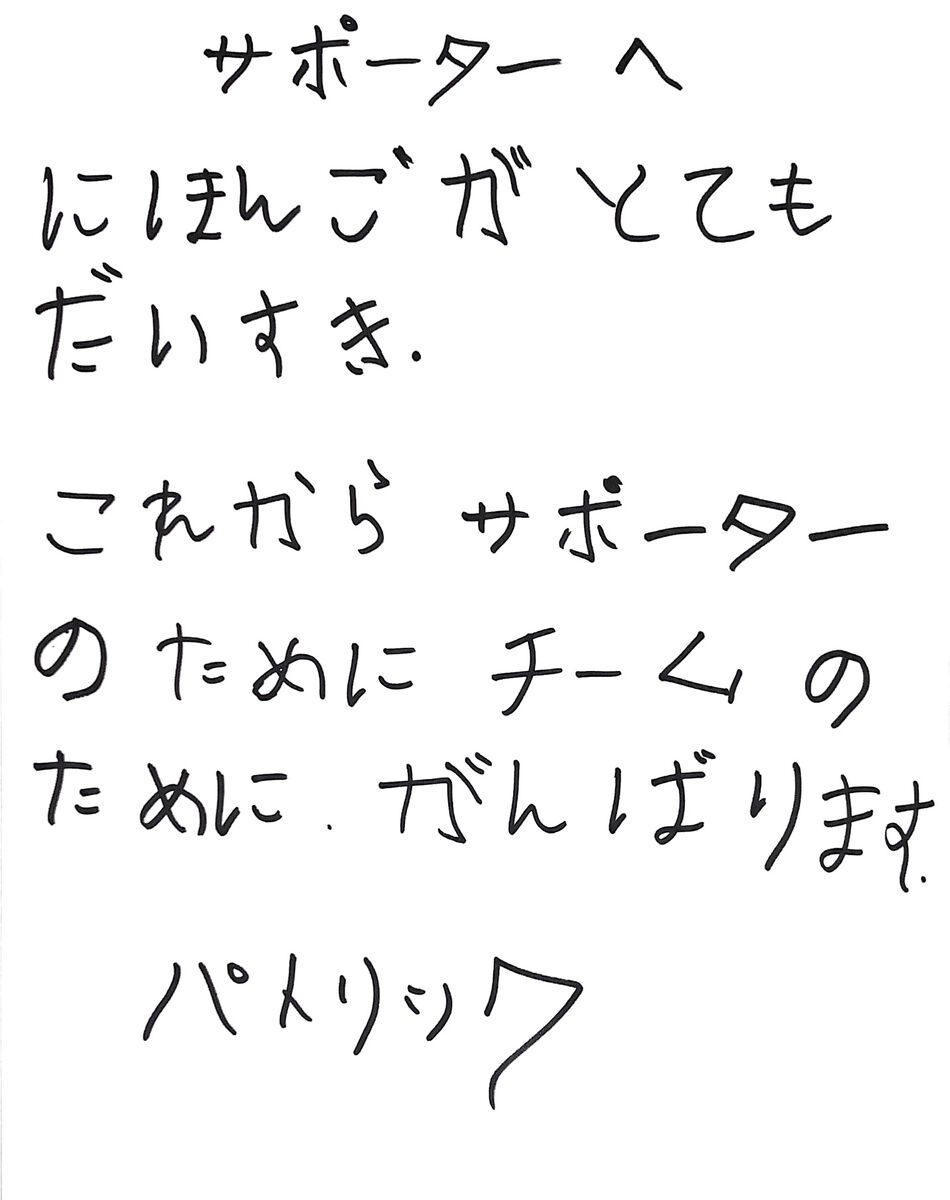 サポーターへ
にほんごがとても
だいすき.
これからサポーター
のためにチームの
ために.がんばります.
パトリック